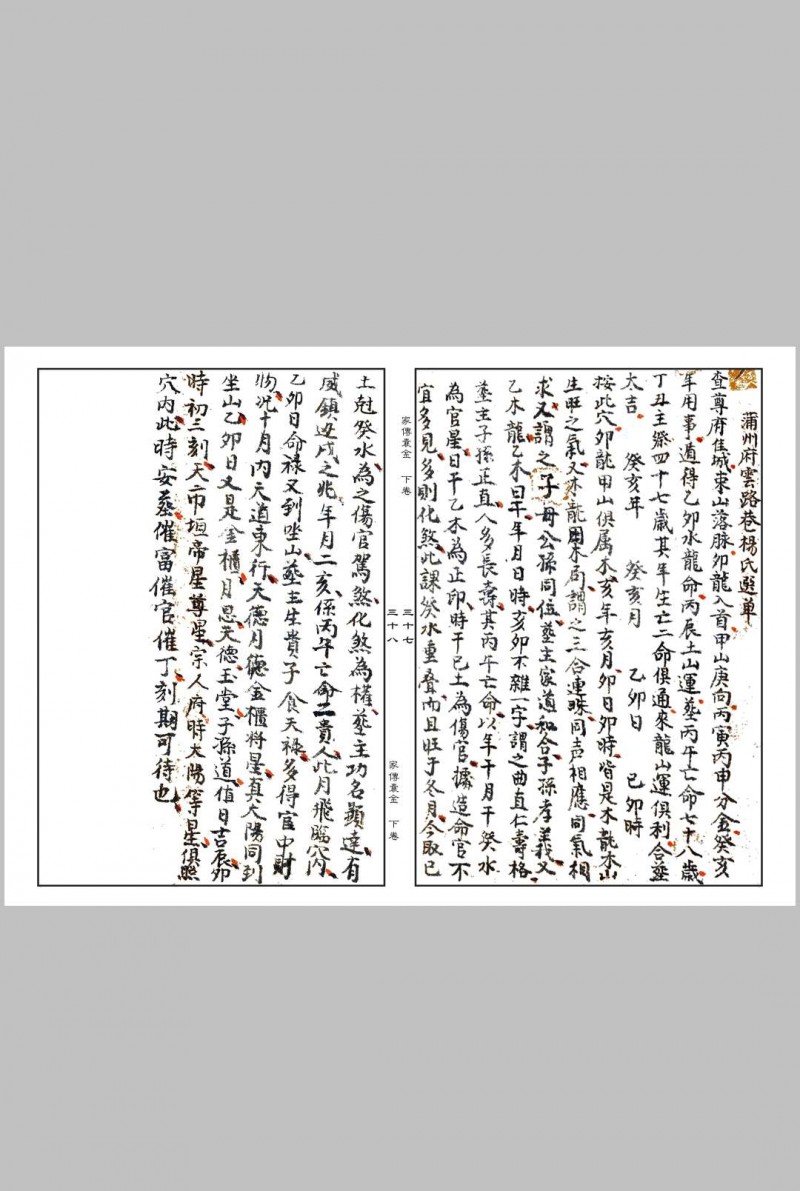 蒲州府雲路巷楊氏選單
查尊府佳城東山落脉卯龍入首甲山庚向丙寅丙申分金癸亥
年用事遁得乙卯水龍命丙辰土山運塟丙午亡命七十八歲
丁丑主祭四十七歲其年生亡二命俱通來龍山運俱利合塟
大吉 癸亥年 癸亥月 乙卯日 己卯時
按此穴卯龍甲山俱属木亥年亥月卯日卯時皆是木龍木山
生旺之氣又木龍用木局謂之三合連珠同声相應同氣相
求又謂之子母公孫同位塟主家道和合子孫孝義又
乙木龍乙木日干年月日時亥卯不雜一字謂之曲直仁壽格
塟主子孫正直人多長壽其丙午亡命以年干月干癸水
為官星日干乙木為正印時干己土為傷官據造命官不
宜多見多則化煞此課癸水重叠而且旺于冬月今取己
三十七
家傳袁金 下卷
土尅癸水為之傷官駕煞化煞為權塟主功名顯達有
威鎮邊戍之兆年月二亥係丙午亡命二貴人此月飛臨穴內
乙卯日命禄又到坐山塟主生貴子食天禄多得官中財
物况十月內天道東行天德月德金櫃將星真太陽同到
坐山乙卯日又是金櫃月恩天德玉堂子孫道值日吉辰卯
時初三刻天市垣帝星尊星宗人府時太陽等星俱照
穴內此時安塟催富催官催丁刻期可待也
三十八
家傳袁金 下卷